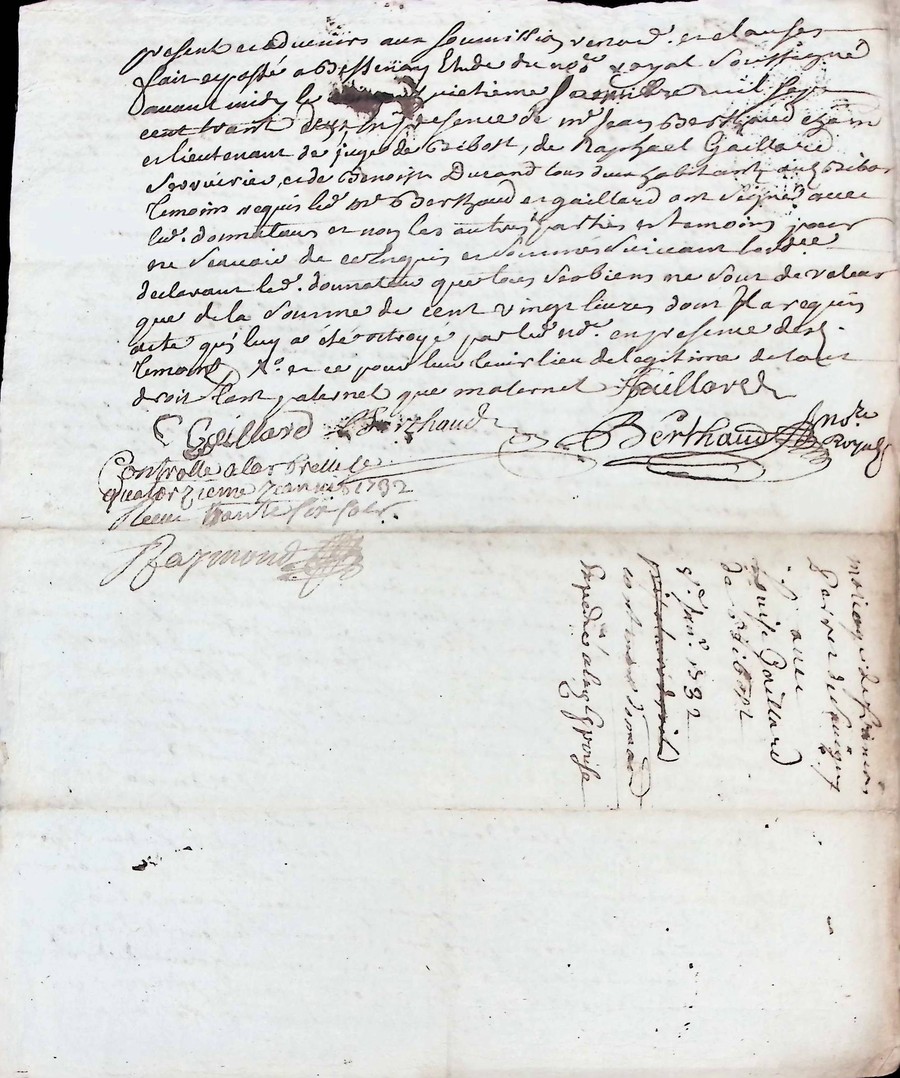 present et advenirs aux soumission renon.ˢ et clauses
fait et passé a Bessenay Etude du no.ʳᵉ royal soussigné
avant midy le quatrieme Janvier mil sept
cent trant deux en presence de mʳ Jean Berthaud
et lieutenant de juge de Bibost, de Raphael Gaillard
et de Benoist Durand tous deux habitant aud Bibost
temoins requis led. mʳ Berthaud et gaillard ont signé avec
led. donnateur et non les autres parties et temoins pour
ne scavoir de ce enquis et sommés suivant lordce
declarant led. donnateur que tous ses biens ne sont de valeur
que de la somme de cent vingt livres dont Il a requis
acte qui luy a été octroyé par led. noʳᵉ en presence desd.
temoins et ce pour leur tenir lieu de legitime de tout
droit tant paternel que maternel Gaillard
C Gaillard Berthaud Berthaud noʳᵉ Royal
Controllé a larbrelle le
quatorzieme Janvier 1732
Receu trante six sols
Raymond
mariage de francois
avec
Louise Gaillard
de Bibost
4ᵉ janʳ. 1732
Expedié a